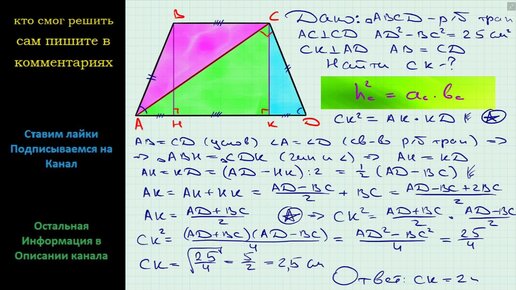 кто смог решить
сам пишите в
комментариях
Ставим лайки
Подписываемся на
Канал
Остальная
Информация в
Описании канала
B C
A H K D
Дано: ABCD – р/б трап
AC⊥CD AD²−BC²=25 см²
CK⊥AD AB=CD
Найти CK–?
h_c² = a_c · b_c
CK² = AK · KD
AB=CD (услов) ∠A=∠D (св-во р/б трап) ⇒
⇒ △ABH=△CDK (гип и ∠) ⇒ AH=KD
AH=KD=(AD−HK):2 = 1/2 (AD−BC)
AK=AH+HK = (AD−BC)/2 + BC = (AD−BC+2BC)/2
AK = (AD+BC)/2 ⇒ CK² = (AD+BC)/2 · (AD−BC)/2
CK² = (AD+BC)(AD−BC)/4 = (AD²−BC²)/4 = 25/4
CK = √(25/4) = 5/2 = 2,5 см
Ответ: CK = 2